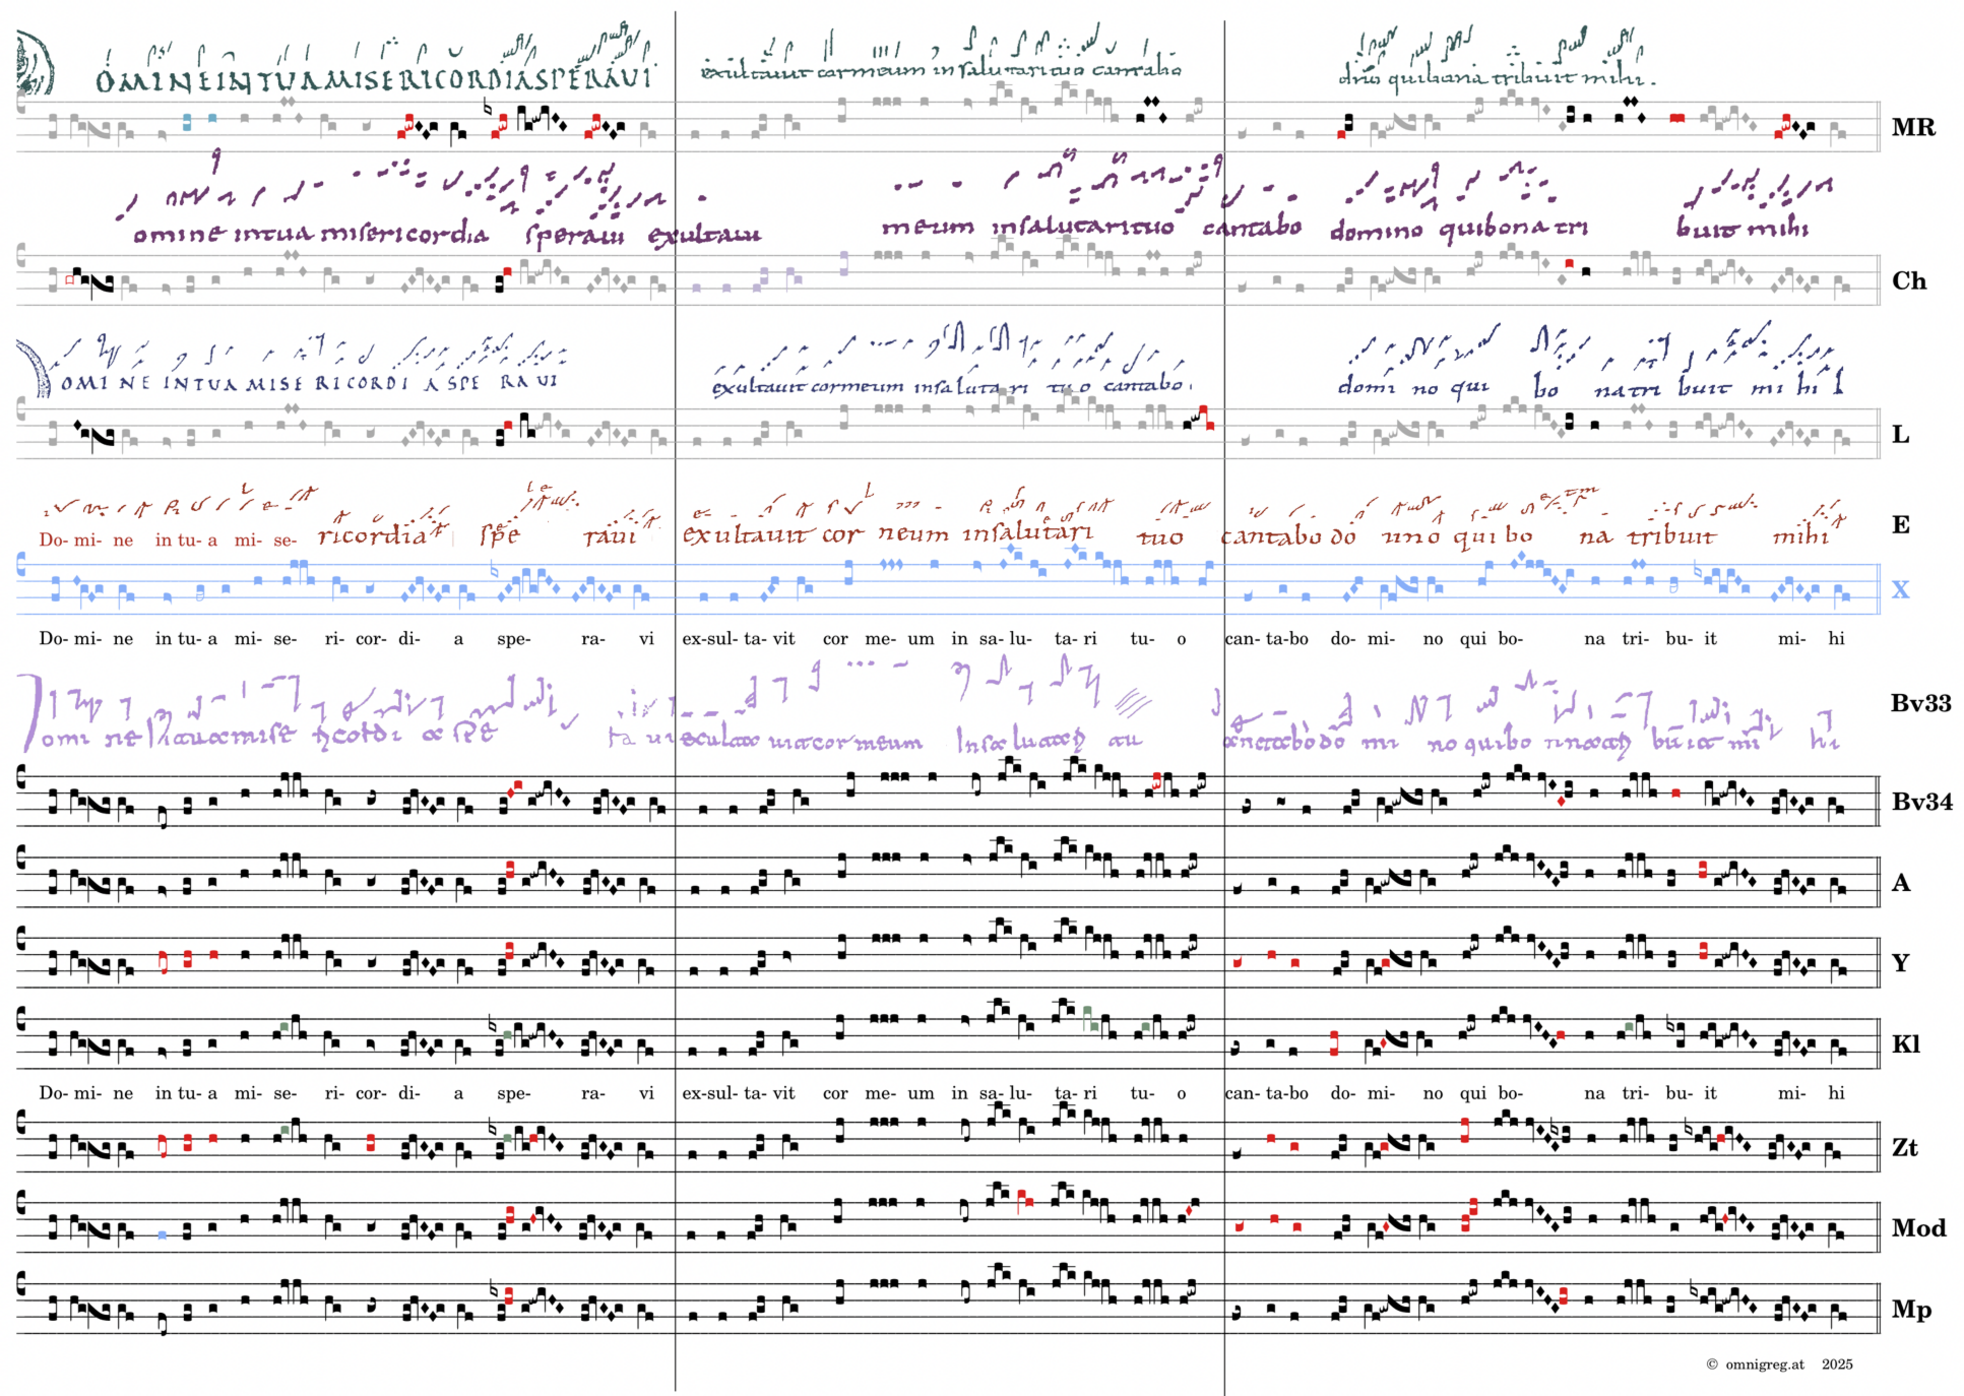 OMINE IN TUA MISERICORDIA SPERAVI exultauit cor meum in salutari tuo cantabo dno qui bona tribuit mihi.
MR
omine intua misericordia speraui exultauit meum insalutarituo cantabo domino quibona tribuit mihi
Ch
OMI NE INTUA MISE RI CORDI A SPE RA UI exultauit cormeum insalutari tuo cantabo. domi no qui bo natri buit mi hi
L
E
Do- mi- ne in tu- a mi- se- ricordia spe raui exultauit cor meum insalutari tuo cantabo do mino qui bo na tribuit mihi
X
Do- mi- ne in tu- a mi- se- ri- cor- di- a spe- ra- vi ex- sul- ta- vit cor me- um in sa- lu- ta- ri tu- o can- ta- bo do- mi- no qui bo- na tri- bu- it mi- hi
Bv33
omi ne
Bv34
A
Y
Kl
Do- mi- ne in tu- a mi- se- ri- cor- di- a spe- ra- vi ex- sul- ta- vit cor me- um in sa- lu- ta- ri tu- o can- ta- bo do- mi- no qui bo- na tri- bu- it mi- hi
Zt
Mod
Mp
© omnigreg.at 2025